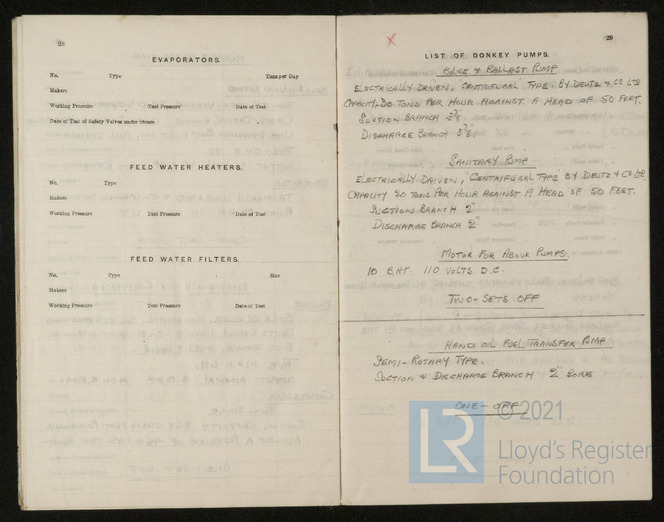 28
EVAPORATORS.
No. Type Tons per Day
Makers
Working Pressure Test Pressure Date of Test
Date of Test of Safety Valves under Steam
FEED WATER HEATERS.
No. Type
Makers
Working Pressure Test Pressure Date of Test
FEED WATER FILTERS.
No. Type Size
Makers
Working Pressure Test Pressure Date of Test
29
LIST OF DONKEY PUMPS.
BILGE & BALLAST PUMP
ELECTRICALLY DRIVEN, CENTRIFUGAL TYPE. BY DEUTZ & CO LTD
CAPACITY. 30 TONS PER HOUR AGAINST A HEAD OF 50 FEET.
SUCTION BRANCH
DISCHARGE BRANCH
SANITARY PUMP
ELECTRICALLY DRIVEN, CENTRIFUGAL TYPE BY DEUTZ & CO LTD.
CAPACITY 20 TONS PER HOUR AGAINST A HEAD OF 50 FEET.
SUCTION BRANCH 2"
DISCHARGE BRANCH 2"
MOTOR FOR ABOVE PUMPS.
10 B.H.P. 110 VOLTS D.C.
TWO-SETS OFF
HAND OIL FUEL TRANSFER PUMP
SEMI-ROTARY TYPE.
SUCTION & DISCHARGE BRANCH 2" BORE
ONE-OFF
© 2021
LR
Lloyd's Register
Foundation